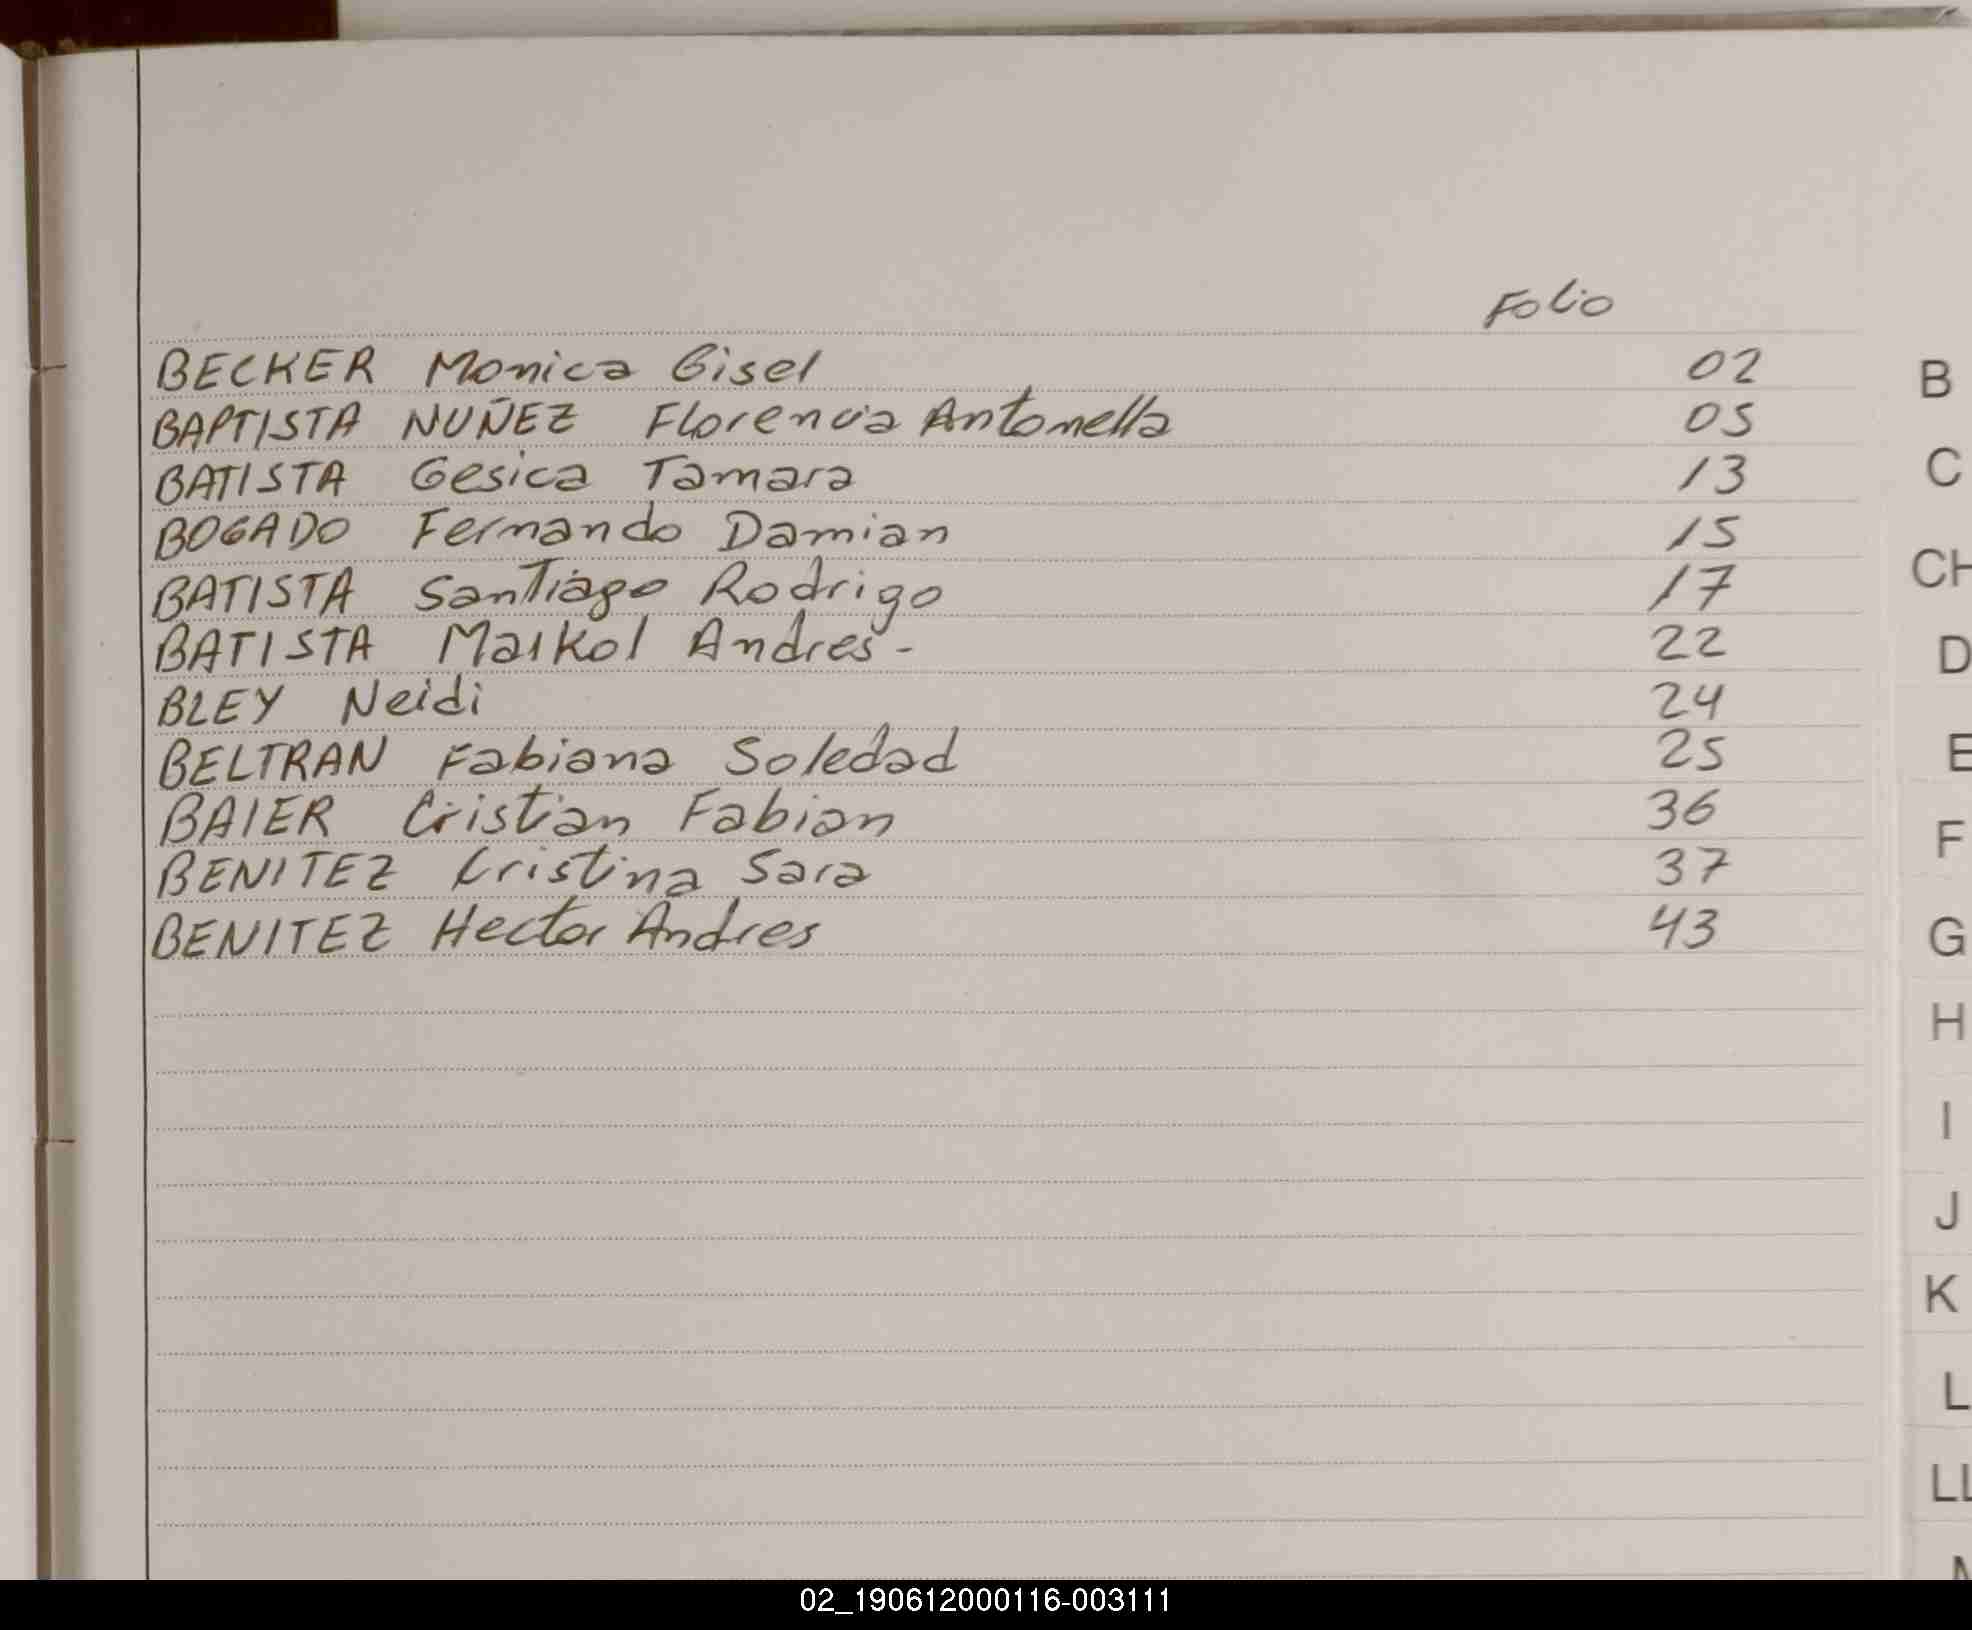 Folio
BECKER Monica Gisel 02
BAPTISTA NUÑEZ Florencia Antonella 05
BATISTA Gesica Tamara 13
BOGADO Fernando Damian 15
BATISTA Santiago Rodrigo 17
BATISTA Maikol Andres - 22
BLEY Neidi 24
BELTRAN Fabiana Soledad 25
BAIER Cristian Fabian 36
BENITEZ Cristina Sara 37
BENITEZ Hector Andres 43
B
C
CH
D
E
F
G
H
I
J
K
L
LL
02_190612000116-003111